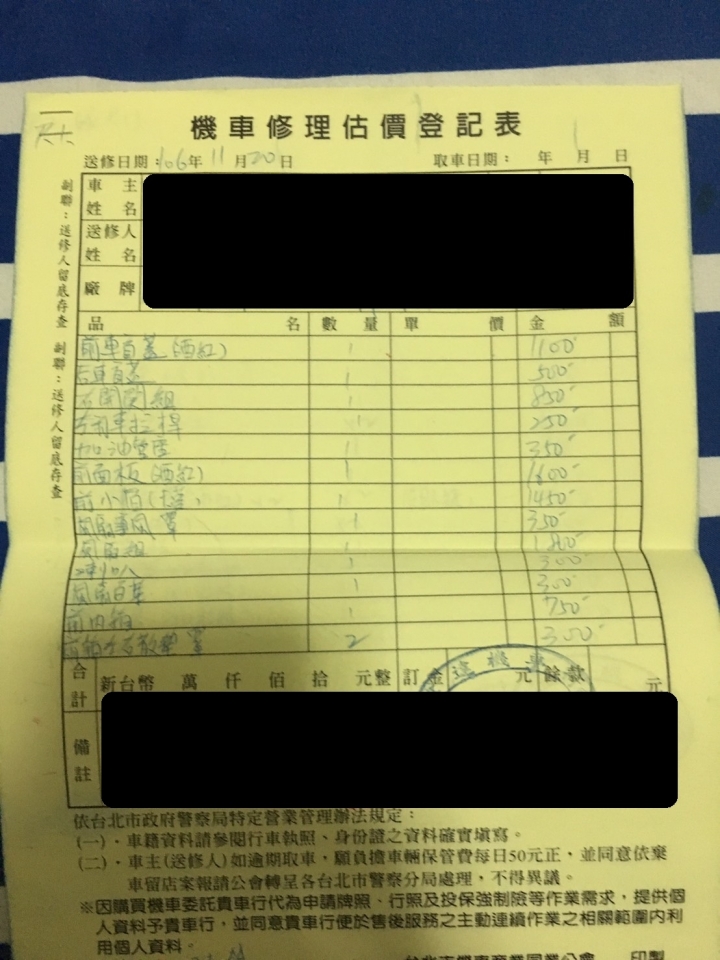 機車修理估價登記表
送修日期：106年11月20日 取車日期： 年 月 日
副聯：送修人留底存查 副聯：送修人留底存查
車主姓名
送修人姓名
廠牌
品名 數量 單價 金額
前車頁蓋(酒紅) 1 1100
右車頁蓋 500
右開關組 1 850
右剎車拉桿 1 250
加油管座 1 350
前面板(酒紅) 1 1600
前小盾 1 1450
風扇車風罩 1 350
1 1800
喇叭 1 300
風扇頁蓋 1 300
前內箱 1 750
2 300
合計 新台幣 萬 仟 佰 拾 元整 訂金 元 餘款 元
備註
依台北市政府警察局特定營業管理辦法規定：
(一)．車籍資料請參閱行車執照、身份證之資料確實填寫。
(二)．車主(送修人)如逾期取車，願負擔車輛保管費每日50元正，並同意依棄
車留店案報請公會轉呈各台北市警察分局處理，不得異議。
※因購買機車委託貴車行代為申請牌照、行照及投保強制險等作業需求，提供個
人資料予貴車行，並同意貴車行便於售後服務之主動連續作業之相關範圍內利
用個人資料。
台北市機車商業同業公會 印製